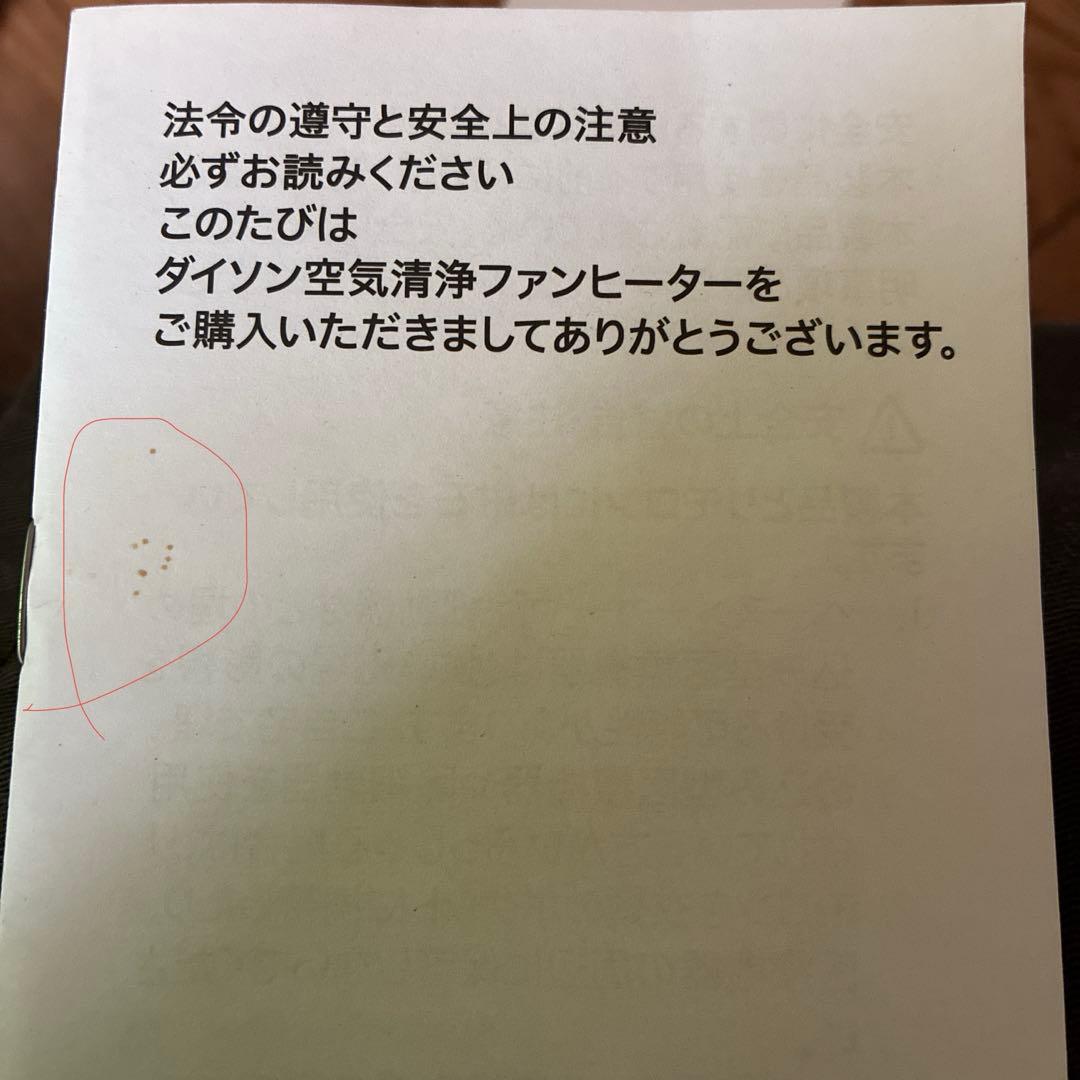 法令の遵守と安全上の注意
必ずお読みください
このたびは
ダイソン空気清浄ファンヒーターを
ご購入いただきましてありがとうございます。